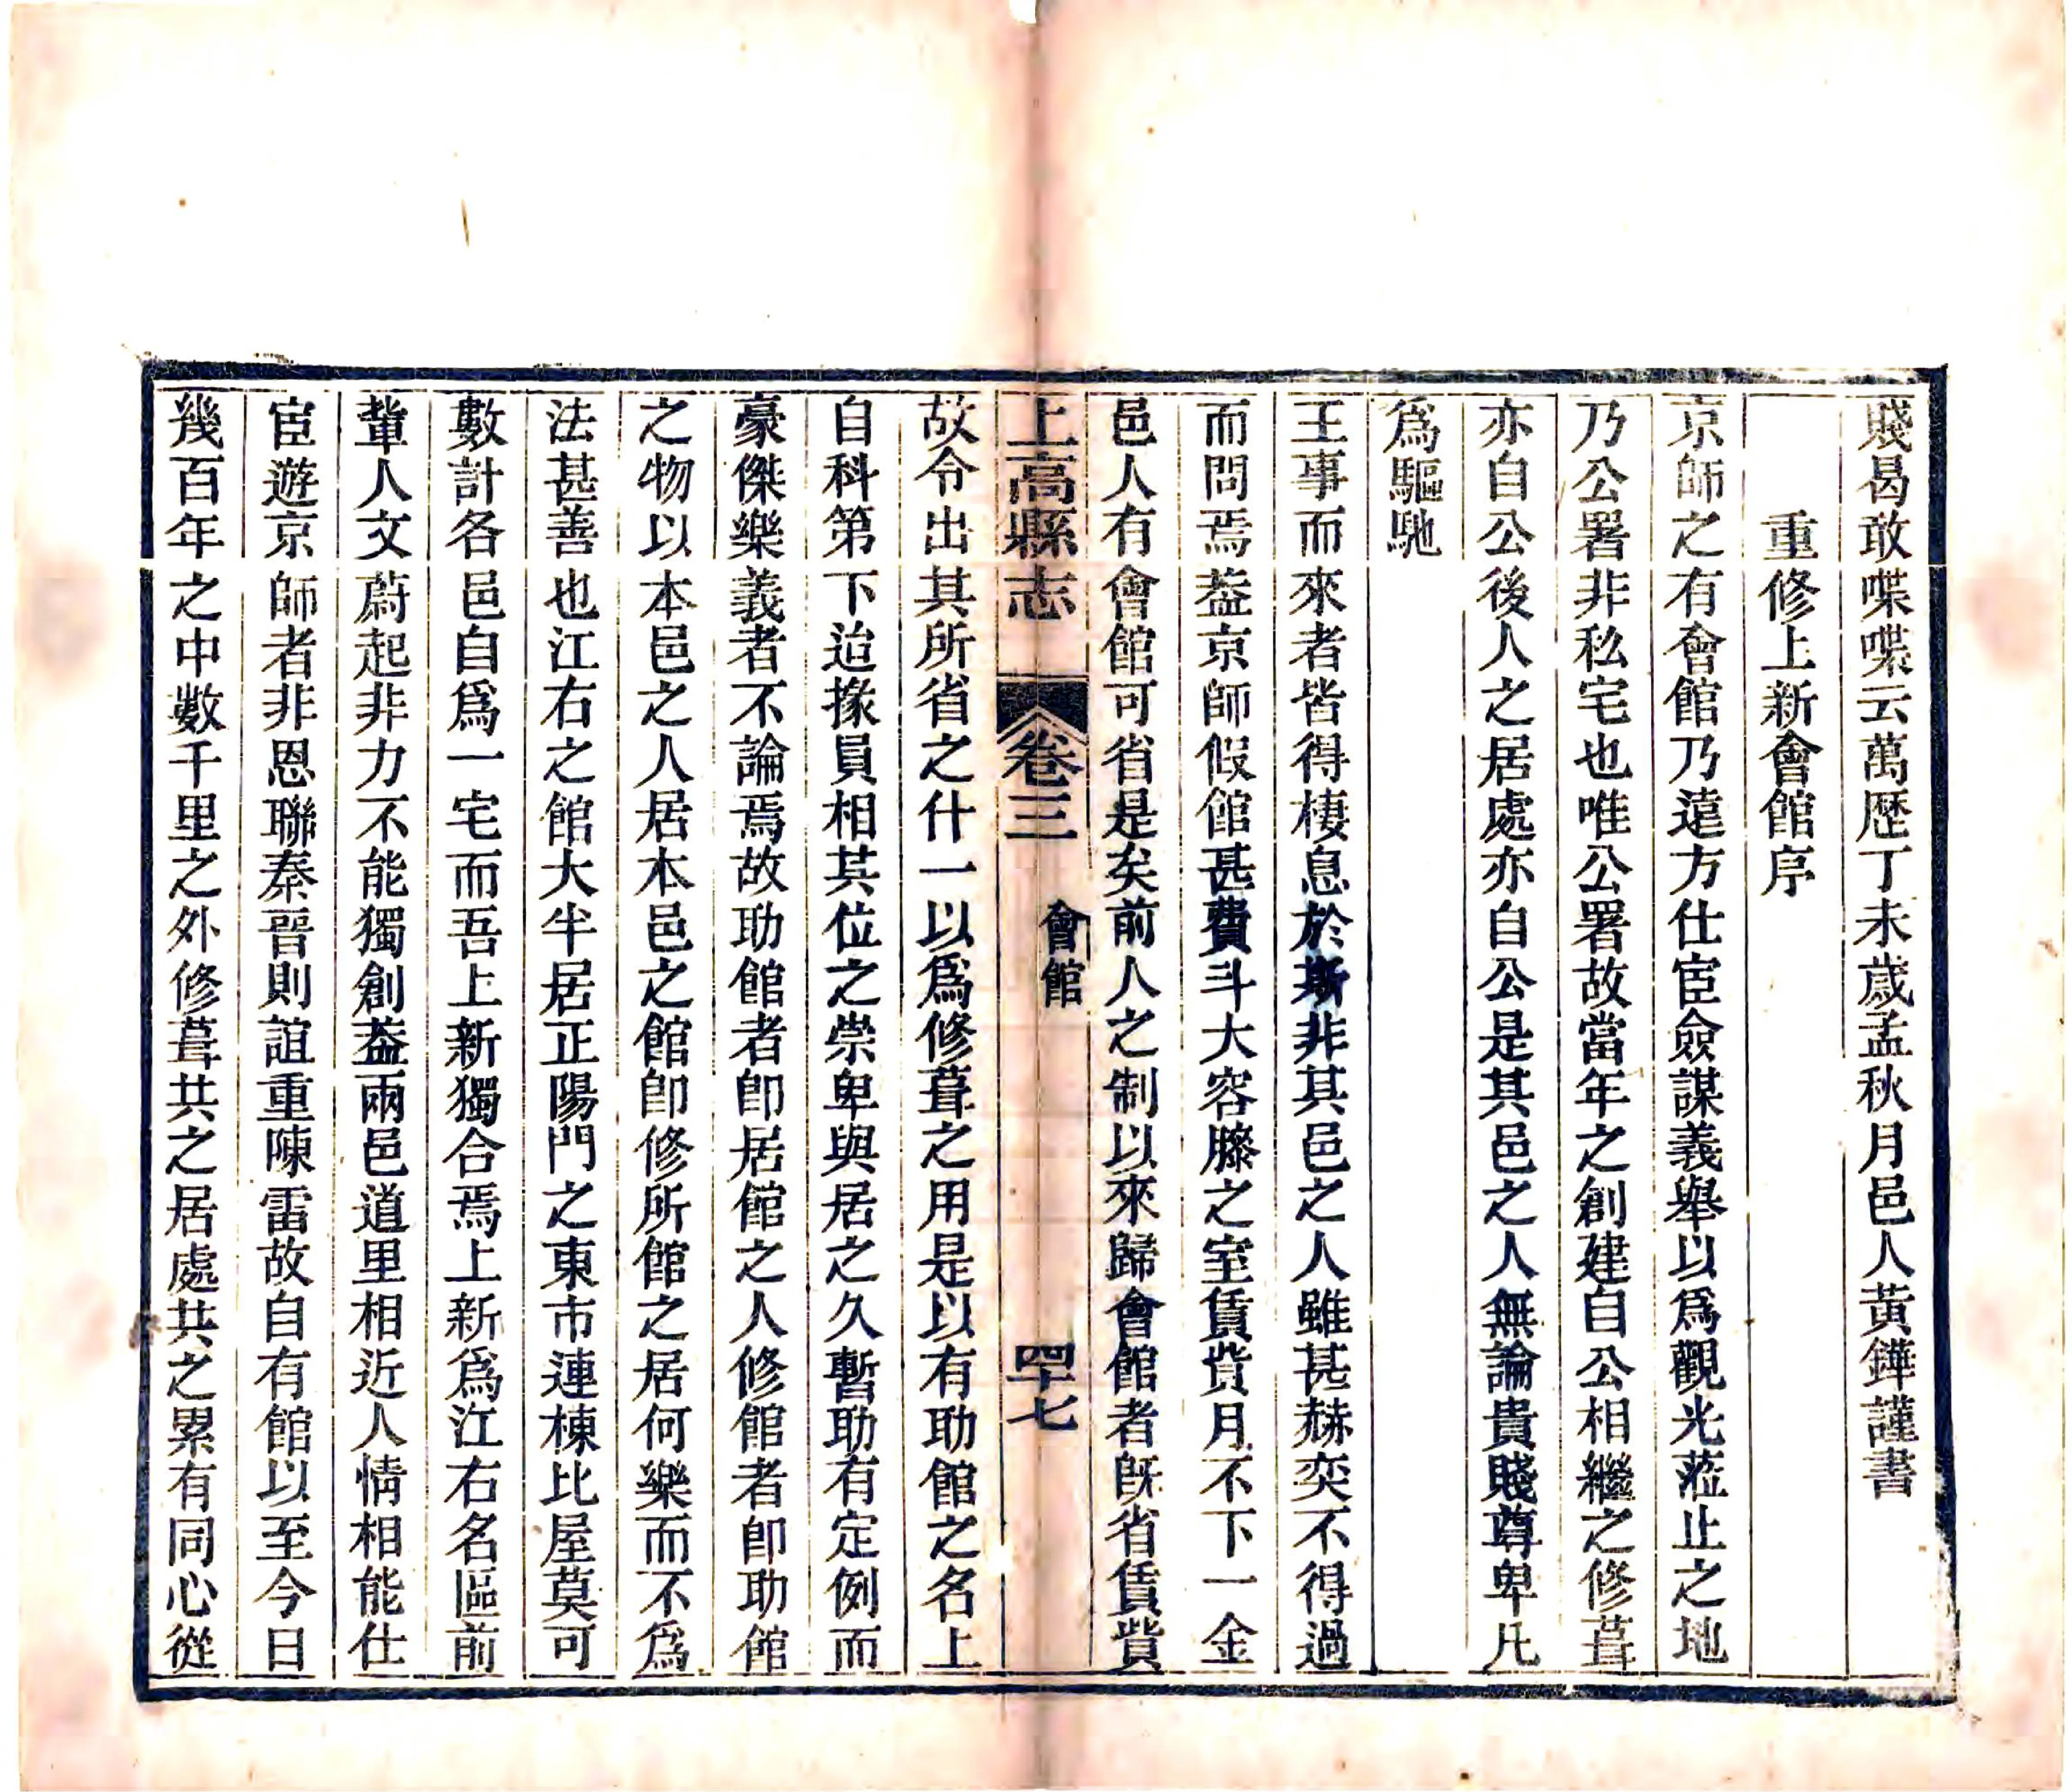 賤曷敢喋喋云萬歷丁未歲孟秋月邑人黃鏵謹書
重修上新會館序
京師之有會館乃遠方仕宦僉謀義舉以爲觀光蒞止之地
乃公署非私宅也唯公署故當年之創建自公相繼之修葺
亦自公後人之居處亦自公是其邑之人無論貴賤尊卑凡
爲驅馳
王事而來者皆得棲息於斯非其邑之人雖甚赫奕不得過
而問焉葢京師假館甚費斗大容膝之室賃貲月不下一金
邑人有會館可省是矣前人之制以來歸會館者旣省賃貲
故令出其所省之什一以爲修葺之用是以有助館之名上
自科第下迨掾員相其位之崇卑與居之久暫助有定例而
豪傑樂義者不論焉故助館者卽居館之人修館者卽助館
之物以本邑之人居本邑之館卽修所館之居何樂而不爲
法甚善也江右之館大半居正陽門之東市連棟比屋莫可
數計各邑自爲一宅而吾上新獨合焉上新爲江右名區前
輩人文蔚起非力不能獨創葢兩邑道里相近人情相能仕
宦遊京師者非恩聯秦晉則誼重陳雷故自有館以至今日
幾百年之中數千里之外修葺共之居處共之累有同心從
上高縣志
卷三
會館
四十七